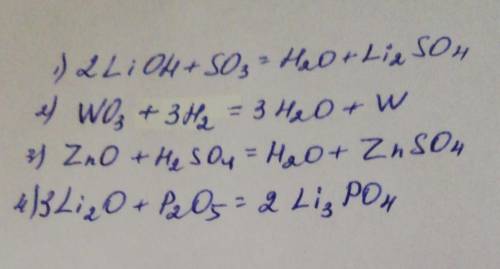 1) 2LiOH + SO₃ = H₂O + Li₂SO₄
2) WO₃ + 3H₂ = 3H₂O + W
3) ZnO + H₂SO₄ = H₂O + ZnSO₄
4) 3Li₂O + P₂O₅ = 2Li₃PO₄